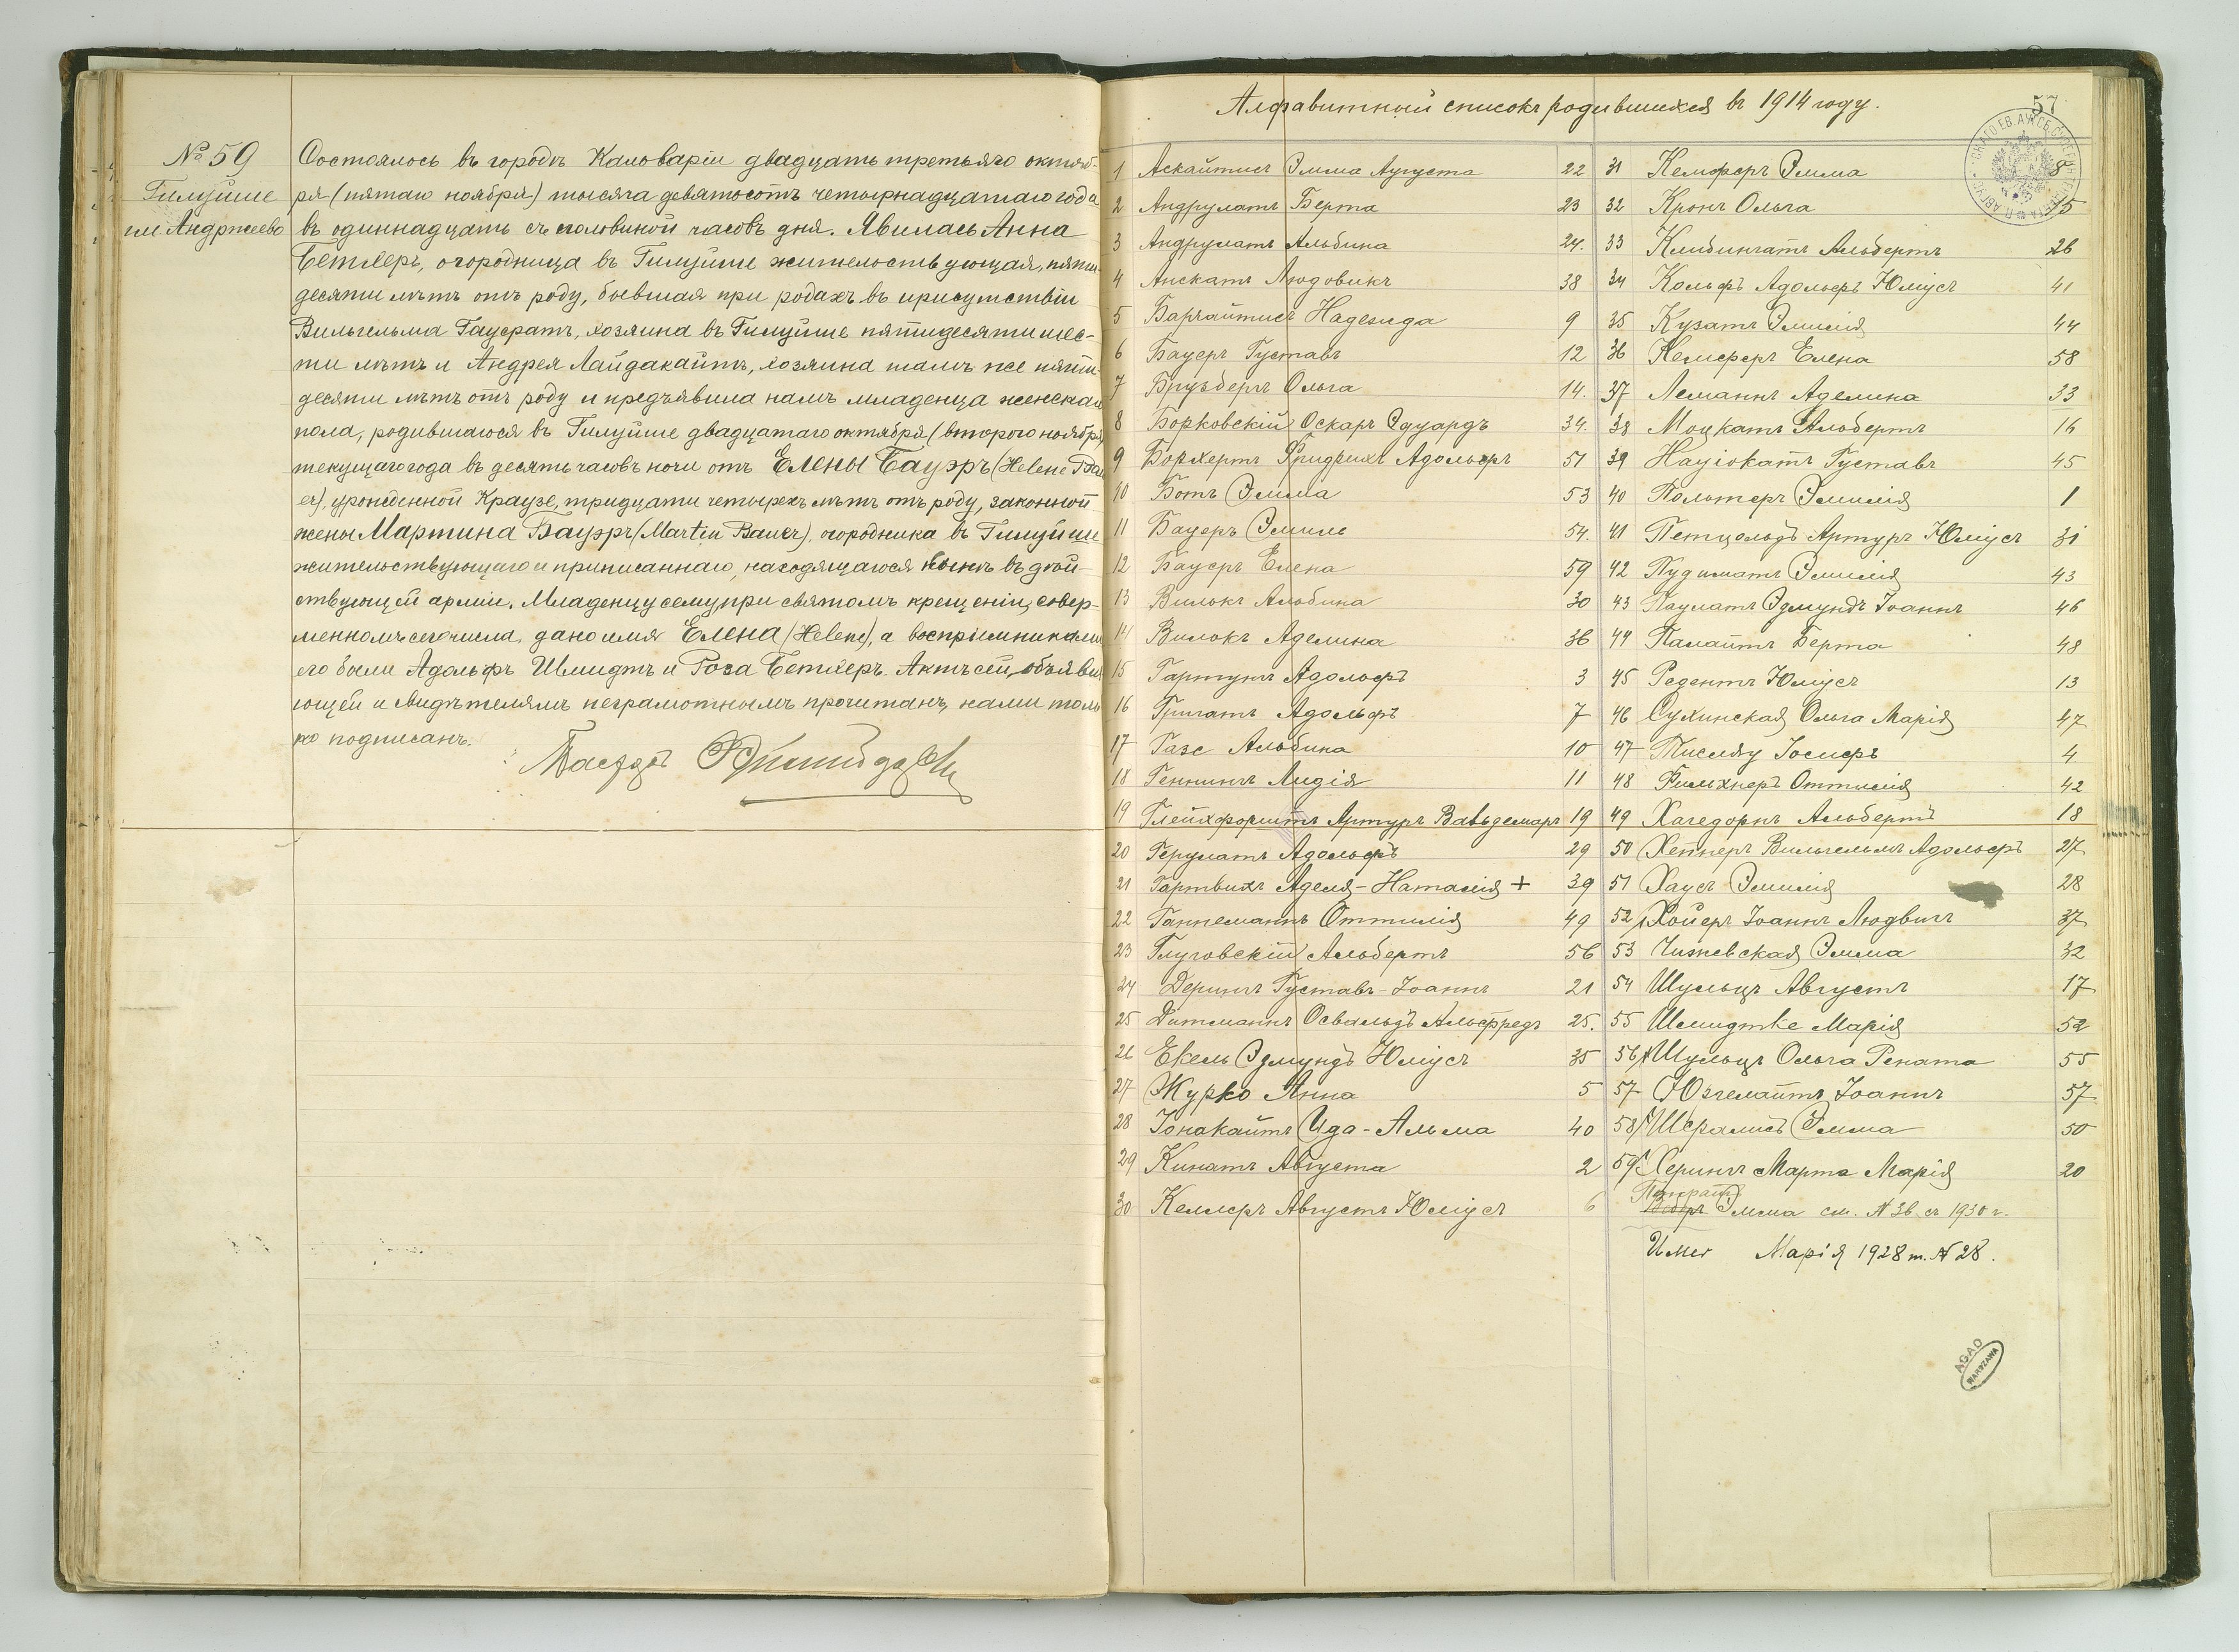 № 59
Гилуйше
гм. Андржеево
Состоялось въ городѣ Кальваріи двадцать третьяго октяб-
ря (пятаго ноября) тысяча девятьсотъ четырнадцатаго года
въ одиннадцать съ половиной часовъ дня. Явилась Анна
Бетхеръ, огородница въ Гилуйше жительствующая, пяти-
десяти лѣтъ отъ роду, бывшая при родахъ въ присутствіи
Вильгельма Гауератъ, хозяина въ Гилуйше пятидесяти шес-
ти лѣтъ и Андрея Лайдакайтъ, хозяина тамъ же пяти-
десяти лѣтъ отъ роду и предъявила намъ младенца женскаго
пола, родившагося въ Гилуйше двадцатаго октября (второго ноября)
текущаго года въ десять часовъ ночи отъ Елены Бауэръ (Helene Bau
er), урожденной Краузе, тридцати четырехъ лѣтъ отъ роду, законной
жены Мартина Бауэръ (Martin Bauer), огородника въ Гилуйше
жительствующаго и приписаннаго, находящагося нынѣ въ дѣй-
ствующей арміи. Младенцу сему при святомъ крещеніи, совер-
шенномъ сего числа, дано имя Елена (Helene), а воспріемниками
его были Адольфъ Шмидтъ и Роза Бетхеръ. Актъ сей, объявля
ющей и свидѣтелямъ неграмотнымъ прочитанъ, нами толь
ко подписанъ.
Пасторъ
57
Алфавитный списокъ родившихся въ 1914 году.
1 Аскайтисъ Эмма Августа 22
2 Андрулатъ Берта 23
3 Андрулатъ Альбина 24.
4 Анскатъ Людовикъ 38
5 Баргайтисъ Надежда 9
6 Бауеръ Густавъ 12
7 Брузбергъ Ольга 14.
8 Борковскій Оскаръ Эдуардъ 34.
9 Борхертъ Фридрихъ Адольфъ 51
10 Ботъ Эмма 53
11 Бауеръ Эмиль 54.
12 Бауеръ Елена 59
13 Вилькъ Альбина 30
14 Вилькъ Аделина 36
15 Гартунгъ Адольфъ 3
16 Григатъ Адольфъ 7
17 Газе Альбина 10
18 Геннингъ Лидія 11
19 Глейхфорштъ Артуръ Вальдемаръ 19
20 Герулатъ Адольфъ 29
21 Гартвихъ Аделя-Наталія + 39
22 Ганнеманнъ Оттилія 49
23 Глуговскій Альбертъ 56
24 Дерингъ Густавъ-Іоаннъ 21
25 Дитманнъ Освальдъ Альфредъ 25.
26 Екель Эдмундъ Юліусъ 35
27 Журко Анна 5
28 Іонакайтъ Ида-Альма 40
29 Кинатъ Августа 2
30 Келлеръ Августъ Юліусъ 6
31 Кемферъ Эмма 8
32 Кронъ Ольга 15
33 Клибингатъ Альбертъ 26
34 Кольфъ Адольфъ Юліусъ 41
35 Кузатъ Эмилія 44
36 Кемферъ Елена 58
37 Леманнъ Аделина 33
38 Моцкатъ Альбертъ 16
39 Науіокатъ Густавъ 45
40 Польтеръ Эмилія 1
41 Петцельдъ Артуръ Юліусъ 31
42 Пудиматъ Эмилія 43
43 Паулатъ Эдмундъ Іоаннъ 46
44 Палайтъ Берта 48
45 Редентъ Юліусъ 13
46 Сухинская Ольга Марія 47
47 Тислеву Іосифъ 4
48 Фильхнеръ Оттилія 42
49 Хагедорнъ Альбертъ 18
50 Хепнеръ Вильгельмъ Адольфъ 27
51 Хаусъ Эмилія 28
52 Хойеръ Іоаннъ Людвигъ 37
53 Чижевская Эмма 32
54 Шульцъ Августъ 17
55 Шмидтке Марія 52
56 Шульцъ Ольга Рената 55
57 Югелайтъ Іоаннъ 57
58 Шералисъ Эмма 50
59 Херингъ Марта Марія 20
Эмма см. № 36 съ 1930 г.
Имег Марія 1928 г. № 28.
AGAD
WARSZAWA